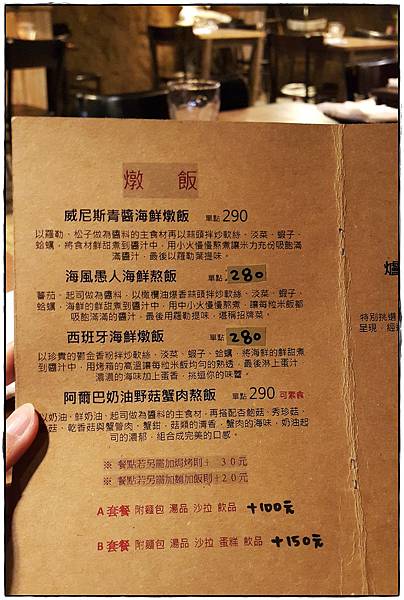 燉 飯
威尼斯青醬海鮮燉飯 單點 290
以羅勒、松子做為醬料的主食材再以蒜頭拌炒軟絲、淡菜、蝦子、
蛤蠣，將食材鮮甜煮到醬汁中，用小火慢慢熬煮讓米力充份吸飽滿
滿醬汁，最後以羅勒葉提味。
海風愚人海鮮熬飯 單點 280
蕃茄、起司做為醬料，以橄欖油爆香蒜頭拌炒軟絲、淡菜、蝦子、
蛤蠣，海鮮的鮮甜煮到醬汁中，用中小火慢慢熬煮，讓每粒米飯都
吸飽滿滿的醬汁，最後用羅勒提味，堪稱招牌菜。
西班牙海鮮燉飯 單點 280
以珍貴的鬱金香粉拌炒軟絲、淡菜、蝦子、蛤蠣，將海鮮的鮮甜煮
到醬汁中，用烤箱的高溫讓每粒米飯均勻的熟透，最後淋上蛋汁
濃濃的海味加上蛋香，挑逗你的味蕾
阿爾巴奶油野菇蟹肉熬飯 單點 290 可素食
以奶油、鮮奶油、起司做為醬料的主食材，再搭配杏鮑菇、秀珍菇、
菇、乾香菇與蟹管肉、蟹鉗，菇類的清香，蟹肉的海味，奶油起
司的濃郁，組合成完美的口感。
※ 餐點若另需加焗烤則+ 30元
※ 餐點若另需加麵加飯則+20元
A 套餐 附麵包 湯品 沙拉 飲品 +100元
B 套餐 附麵包 湯品 沙拉 蛋糕 飲品 +150元
爐
特別挑選
呈現，經